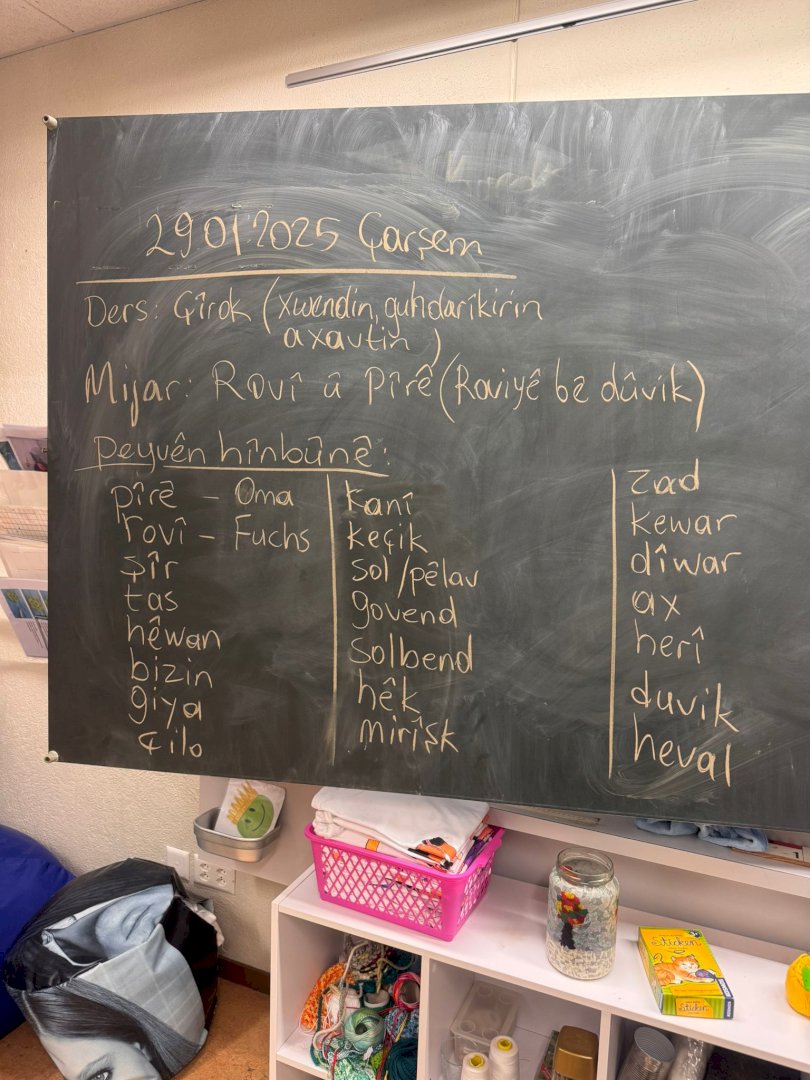 29.01.2025 Çarşem
Ders: Çîrok (xwendin, guhdarîkirin
axavtin)
Mijar: Rovî û Pîrê (Roviyê be dûvik)
Peyvên hînbûnê:
pîrê – Oma
rovî – Fuchs
şîr
tas
hêwan
bizin
giya
çilo
kanî
keçik
sol/pêlav
govend
solbend
hêk
mirîşk
zad
kewar
dîwar
ax
herî
duvik
heval
Sticken